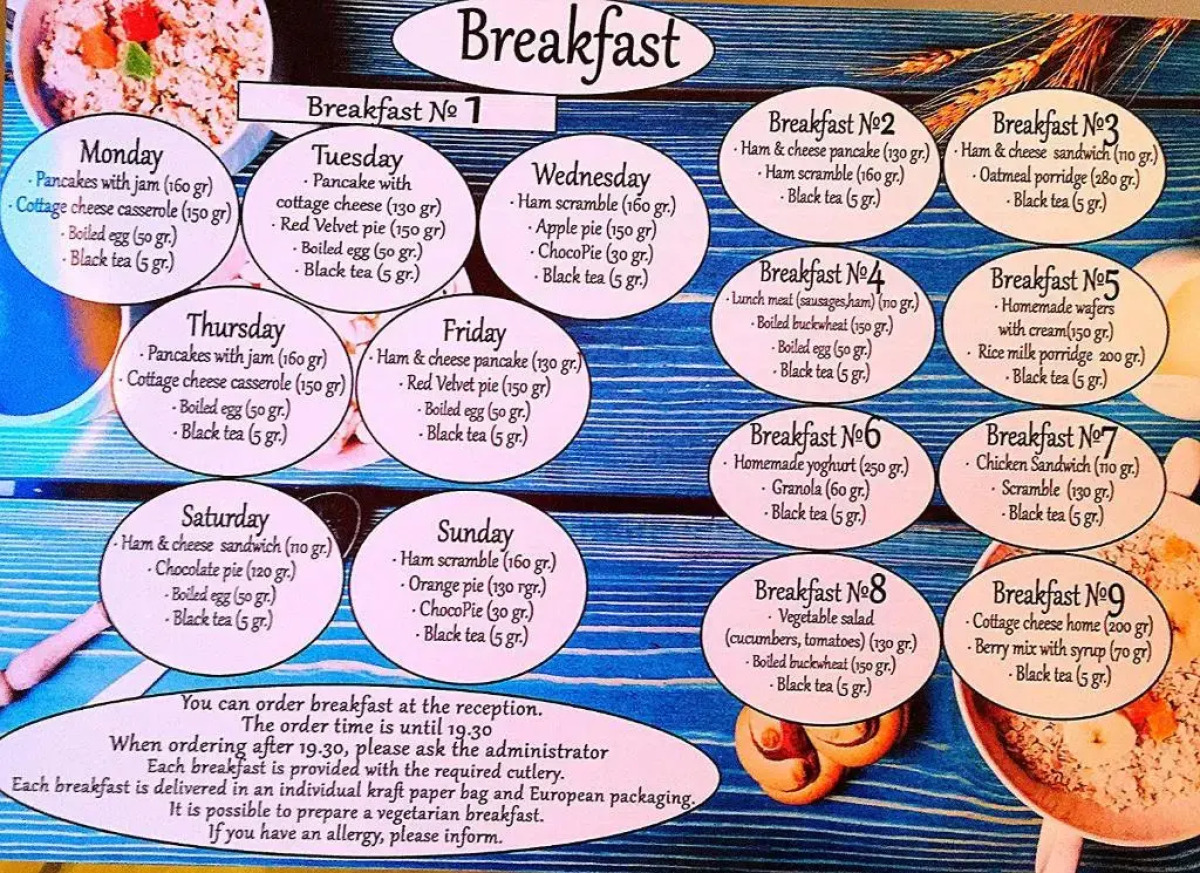 Breakfast
Breakfast № 1
Monday
· Pancakes with jam (160 gr)
· Cottage cheese casserole (150 gr)
· Boiled egg (50 gr.)
· Black tea (5 gr.)
Tuesday
· Pancake with
cottage cheese (130 gr)
· Red Velvet pie (150 gr)
· Boiled egg (50 gr.)
· Black tea (5 gr.)
Wednesday
· Ham scramble (160 gr.)
· Apple pie (150 gr)
· ChocoPie (30 gr.)
· Black tea (5 gr.)
Thursday
· Pancakes with jam (160 gr)
· Cottage cheese casserole (150 gr)
· Boiled egg (50 gr.)
· Black tea (5 gr.)
Friday
· Ham & cheese pancake (130 gr.)
· Red Velvet pie (150 gr)
· Boiled egg (50 gr.)
· Black tea (5 gr.)
Saturday
· Ham & cheese sandwich (110 gr.)
· Chocolate pie (120 gr.)
· Boiled egg (50 gr.)
· Black tea (5 gr.)
Sunday
· Ham scramble (160 gr.)
· Orange pie (130 rgr.)
· ChocoPie (30 gr.)
· Black tea (5 gr.)
Breakfast №2
· Ham & cheese pancake (130 gr.)
· Ham scramble (160 gr.)
· Black tea (5 gr.)
Breakfast №3
· Ham & cheese sandwich (110 gr.)
· Oatmeal porridge (280 gr.)
· Black tea (5 gr.)
Breakfast №4
· Lunch meat (sausages,ham) (110 gr.)
· Boiled buckwheat (150 gr.)
· Boiled egg (50 gr.)
· Black tea (5 gr.)
Breakfast №5
· Homemade wafers
with cream(150 gr.)
· Rice milk porridge 200 gr.)
· Black tea (5 gr.)
Breakfast №6
· Homemade yoghurt (250 gr.)
· Granola (60 gr.)
· Black tea (5 gr.)
Breakfast №7
· Chicken Sandwich (110 gr.)
· Scramble (130 gr.)
· Black tea (5 gr.)
Breakfast №8
· Vegetable salad
(cucumbers, tomatoes) (130 gr.)
· Boiled buckwheat (150 gr.)
· Black tea (5 gr.)
Breakfast №9
· Cottage cheese home (200 gr)
· Berry mix with syrup (70 gr)
· Black tea (5 gr.)
You can order breakfast at the reception.
The order time is until 19.30
When ordering after 19.30, please ask the administrator
Each breakfast is provided with the required cutlery.
Each breakfast is delivered in an individual kraft paper bag and European packaging.
It is possible to prepare a vegetarian breakfast.
If you have an allergy, please inform.